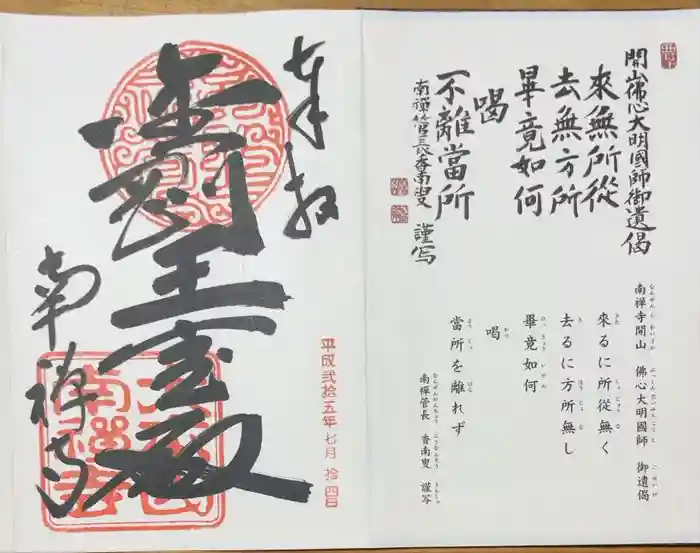 開山佛心大明國師御遺偈
來無所從
去無方所
畢竟如何
喝
不離當所
南禪管長香南叟 謹写
南禪寺開山 佛心大明國師 御遺偈
來るに所從無く
去るに方所無し
畢竟如何
喝
當所を離れず
南禪管長 香南叟 謹写
奉拝
金剛王宝殿
南禅寺
平成弐拾五年七月拾四日